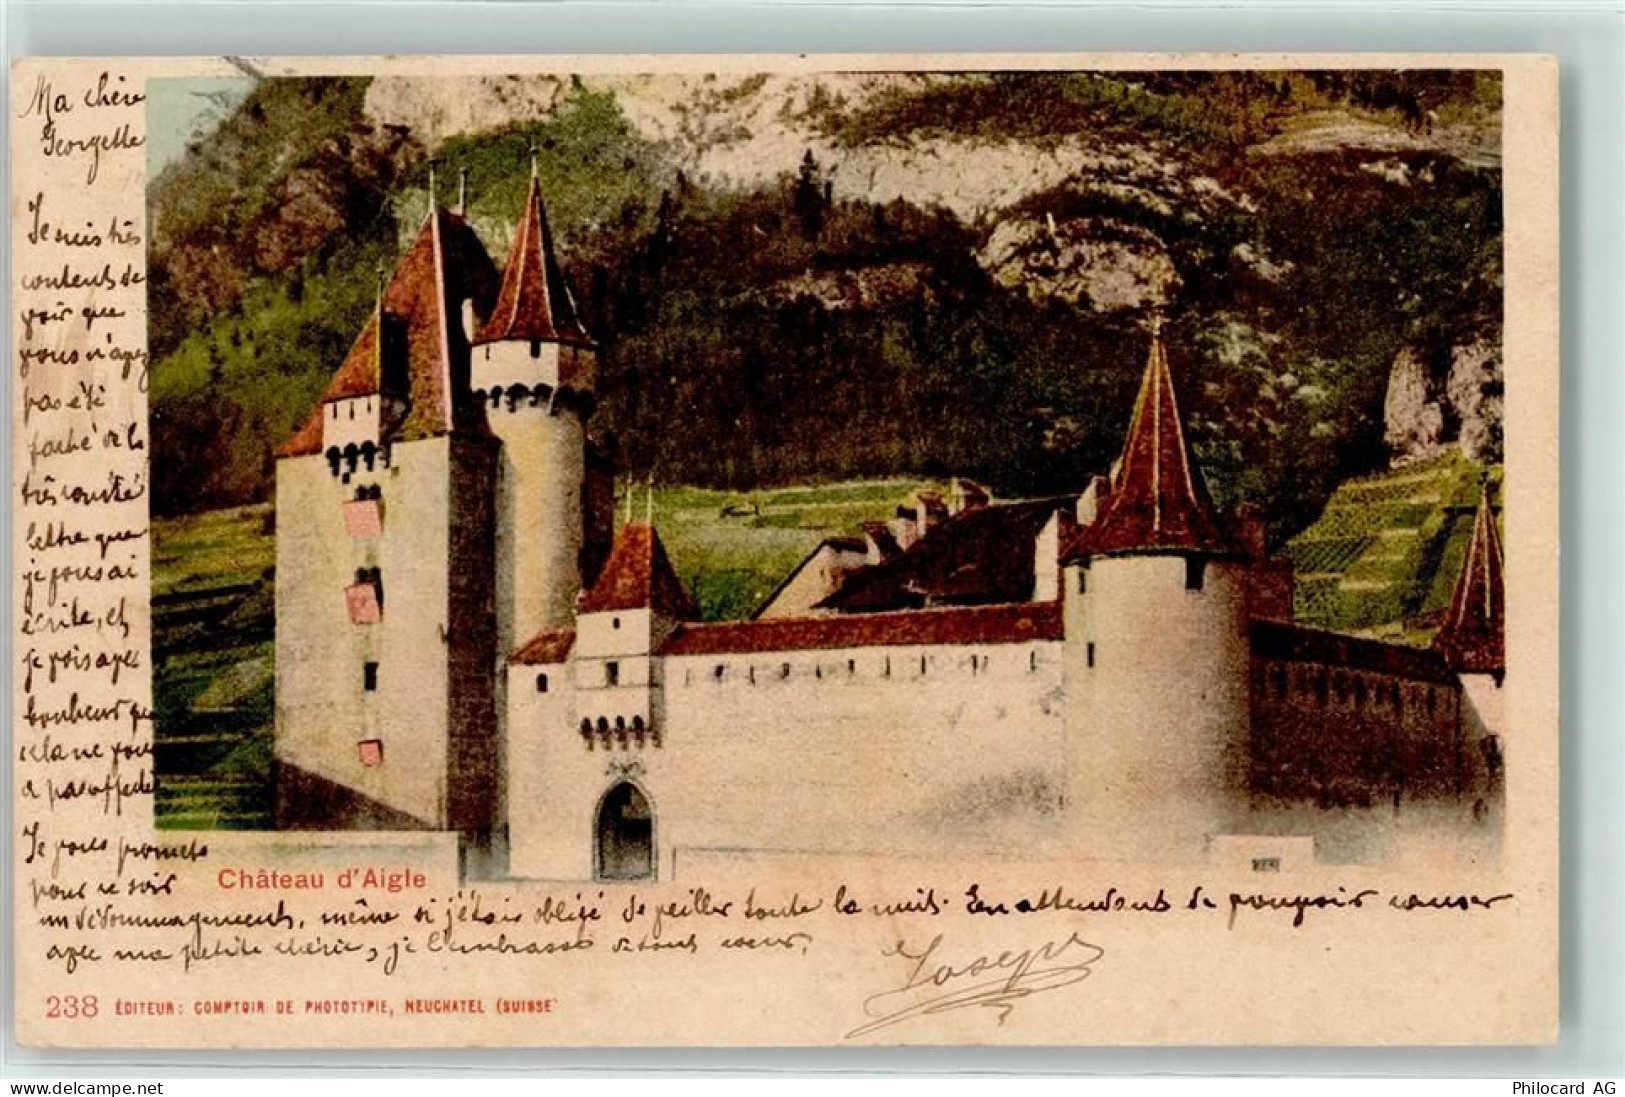 Ma chère
Georgette
Je suis très
contents de
voir que
vous n'avez
pas été
faché de la
très courte
lettre que
je vous ai
écrite, et
je vois avec
bonheur que
cela ne vous
a pas affecté
Je vous promets
pour ce soir
un dédommagement, même si j'étais obligé de veiller toute la nuit. En attendant de pouvoir causer
avec ma petite chérie, je l'embrasse de tout cœur.
Joseph
Château d'Aigle
238 ÉDITEUR: COMPTOIR DE PHOTOTYPIE, NEUCHATEL (SUISSE
www.delcampe.net
Philocard AG